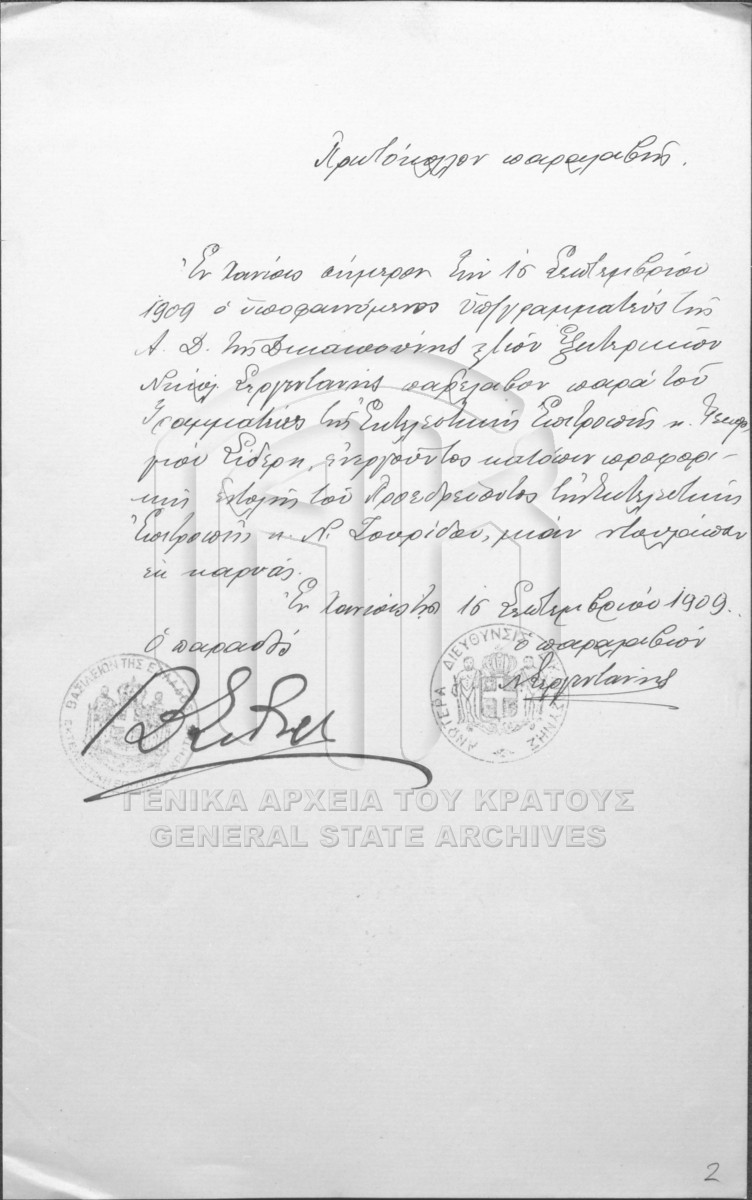 Πρωτόκολλον παραλαβῆς.
Ἐν Χανίοις σήμερον τὴν 15 Σεπτεμβρίου
1909 ὁ ὑποφαινόμενος ὑπογραμματεὺς τῆς
Α. Δ. τῆς Δικαιοσύνης κ τῶν Ἐξωτερικῶν
Νικόλ. παρέλαβον παρὰ τοῦ
Γραμματέως τῆς Ἐκτελεστικῆς Ἐπιτροπῆς κ. Γεωρ
γίου Σιδέρη, ἐνεργοῦντος κατόπιν προφορι-
κῆς ἐντολῆς τοῦ Προεδρεύοντος τῆς Ἐκτελεστικῆς
Ἐπιτροπῆς κ. Ν. Ζουρίδου, μίαν ντουλάπαν
ἐκ καρυᾶς.
Ἐν Χανίοις τῇ 15 Σεπτεμβρίου 1909.
Ὁ παραδούς ὁ παραλαβών
ΒΑΣΙΛΕΙΟΝ ΤΗΣ ΕΛΛΑΔΟΣ
ΑΝΩΤΕΡΑ ΔΙΕΥΘΥΝΣΙΣ
ΓΕΝΙΚΑ ΑΡΧΕΙΑ ΤΟΥ ΚΡΑΤΟΥΣ
GENERAL STATE ARCHIVES
2